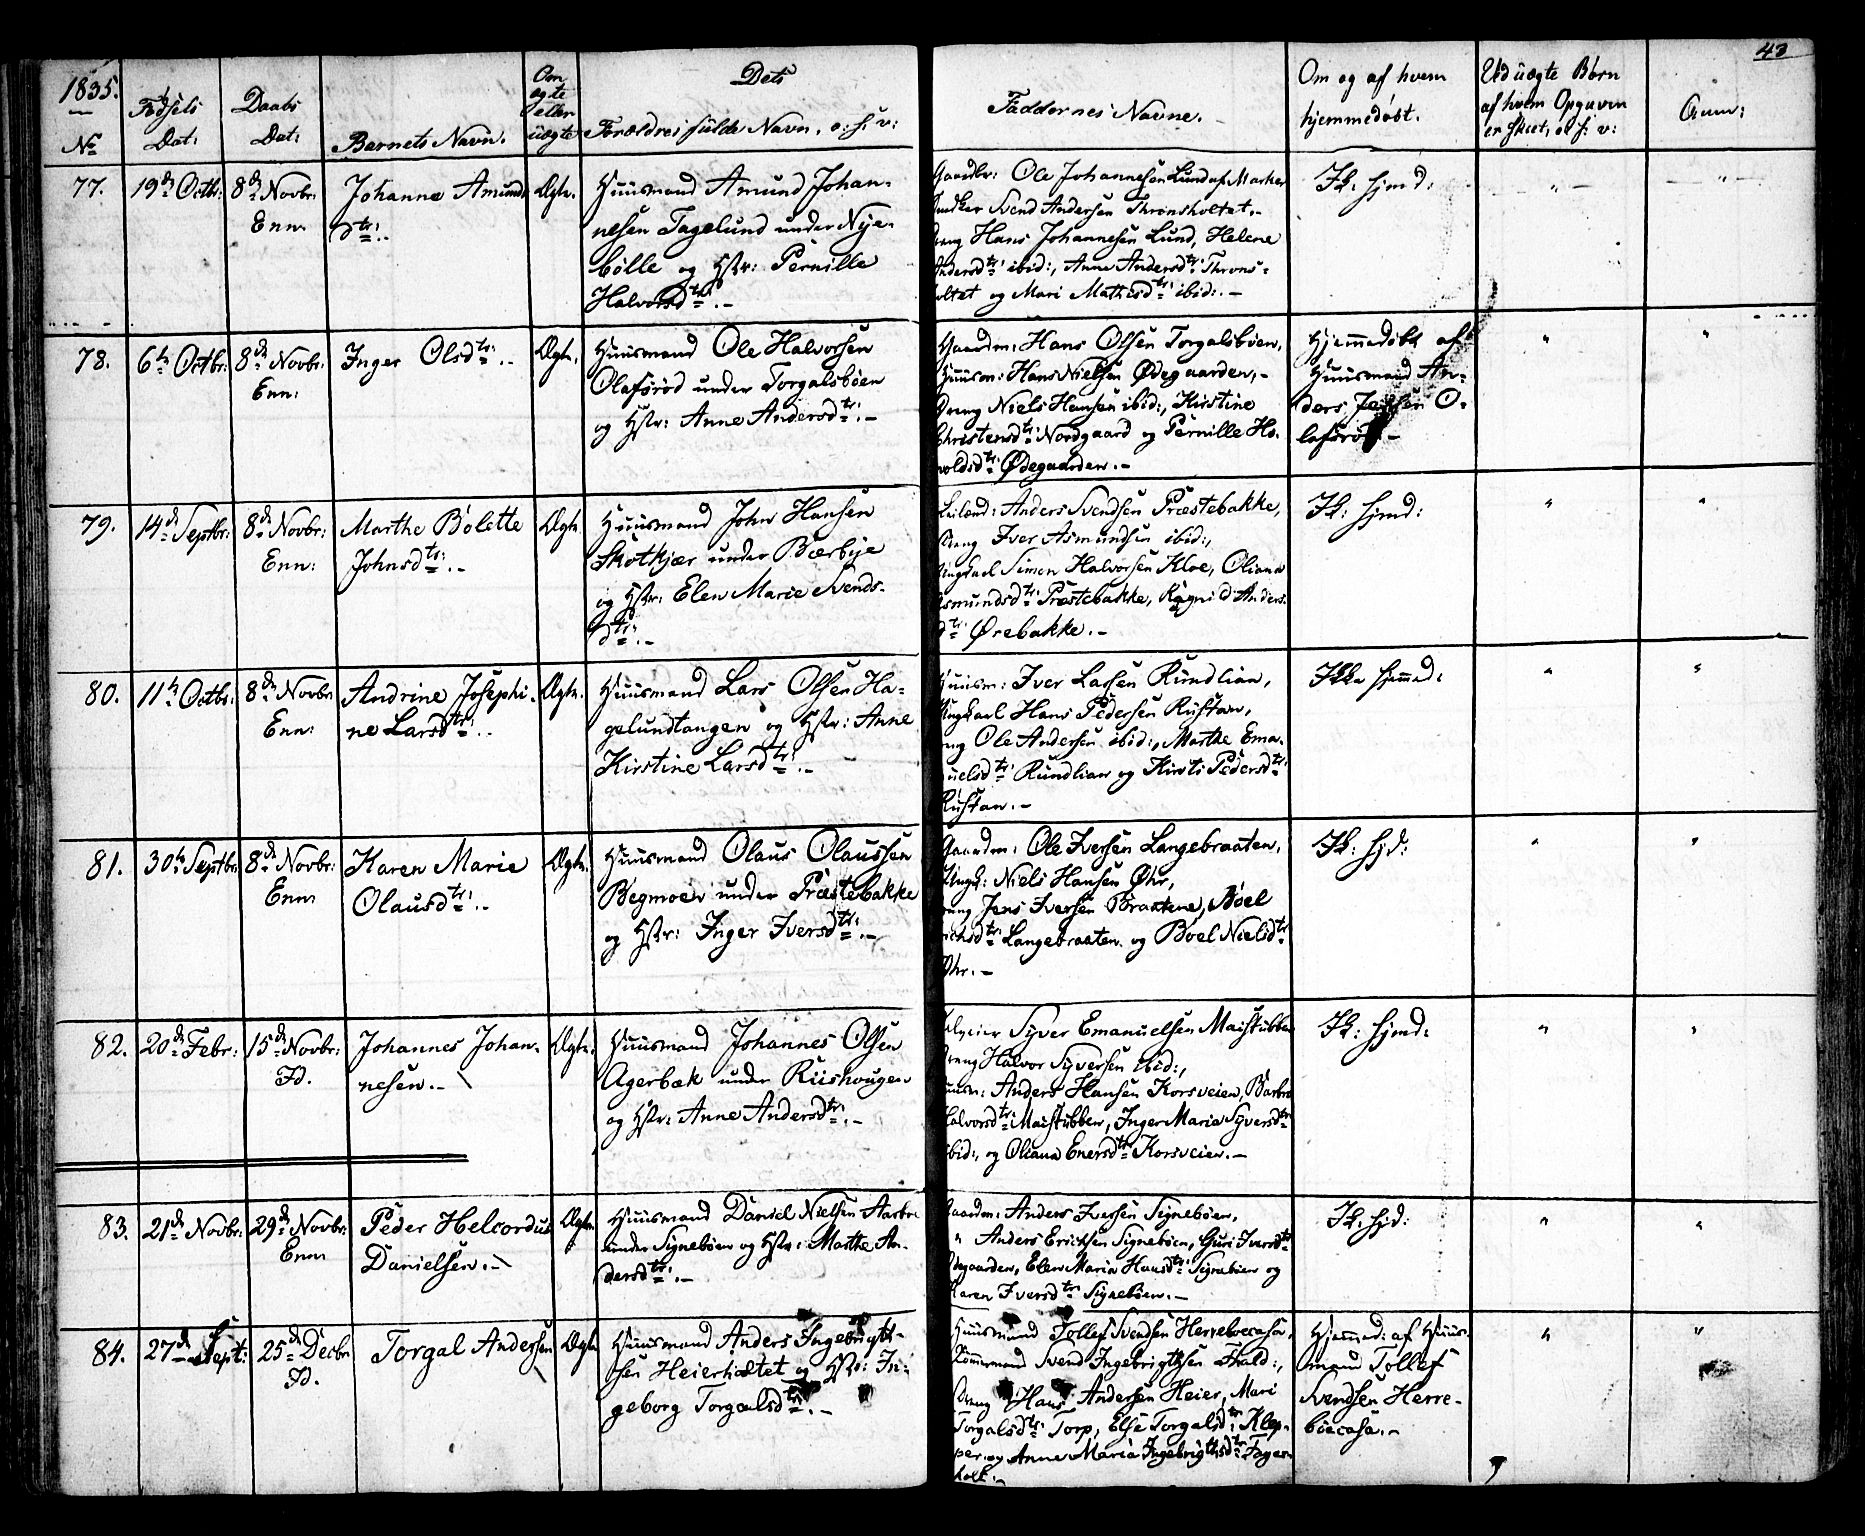 43
1835.
No
Fødsels
Dat:
Daabs
Dat:
Barnets Navn.
Om
ægte
eller
uægte
Dets
Forældres fulde Navn. o: s: v:
Faddernes Navne.
Om og af hvem
hjemmedøbt.
Ved uægte Børn
af hvem Opgaven
er skeet, o: s: v:
Anm:
77.
19de Octbr:
8de Novbr:
Enn:
Johanne Amunds
dtr:.
Ægte.
Huusmand Amund Johan-
nesen Tagelund under Nye-
bölle og Hstr: Pernille
Halvorsdtr:.-
Gaardbr: Ole Johannesen Lund af Marker
Svend Andersen Thronsholtet,-
Dreng Hans Johannesen Lund, Helene
Andersdtr: ibid:, Anne Andersdtr: Throns-
holtet og Mari Mathisdtr: ibid:.-
Ik: hjmd:
"
"
78.
6te Octbr:
8de Novbr:
Enn:
Inger Olsdtr:.
Ægte.
Huusmand Ole Halvorsen
Olafsröd under Torgalsböen
og Hstr: Anne Andersdtr:.-
Gaardm: Hans Olsen Torgalsböen,
Huusm: Hans Nielsen Ødegaarden,-
Dreng Niels Hansen ibid:, Kirstine
Christensdtr: Nordgaard og Pernille Ha-
voldsdtr: Ødegaarden.-
Hjemmedøbt af
Huusmand An-
ders Jensen O-
lafsröd.-
"
"
79.
14de Septbr:
8de Novbr:
Enn:
Marthe Bolette
Johnsdtr:.-
Ægte
Huusmand John Hansen
Skötkjær under Bærbye
og Hstr: Elen Marie Svends-
dtr:.-
Leilænd: Anders Svendsen Præstebakke,
Dreng Iver Asmundsen ibid:,
Ungkarl Simen Halvorsen Kloe, Oliana
Asmundsdtr: Præstebakke, Ragnid Anders-
dtr: Ørebakke.-
Ik: hjmd:
"
"
80.
11te Octbr:
8de Novbr:
Enn:
Andrine Josephi-
ne Larsdtr:.
Ægte.
Huusmand Lars Olsen Ha-
gelundtangen og Hstr: Anne
Kirstine Larsdtr:.-
Huusm: Iver Larsen Rundlian,
Ungkarl Hans Pedersen Rustan,
Dreng Ole Andersen ibid:, Marthe Ema-
nuelsdtr: Rundlian og Kirsti Pedersdtr:
Rustan.-
Ikke hjemmed:
"
"
81.
30te Septbr:
8de Novbr:
Enn:
Karen Marie
Olausdtr:.-
Ægte.
Huusmand Olaus Olaussen
Begmoen under Præstebakke
og Hstr: Inger Iversdtr:.-
Gaardm: Ole Iversen Langebraaten,
Ungk: Niels Hansen Øhr,
Dreng Jens Iversen Braatene, Boel
Erichsdtr: Langebraaten og Boel Nielsdtr:
Øhr.-
Ik: hjd:
"
"
82.
20de Febr:
15de Novbr:
Id.
Johannes Johan-
nesen.-
Ægte.
Huusmand Johannes Olsen
Agerbæk under Riishougen
og Hstr: Anne Andersdtr:.-
Syver Emanuelsen Maistubben
Dreng Halvor Syversen ibid:,
Huusm: Anders Hansen Korsveien, Barbro
Halvorsdtr: Maistubben, Inger Maria Syversdtr:
ibid:, og Oliana Enersdtr: Korsveien.-
Ik: hjmd:
"
"
83.
21de Novbr:
29de Novbr:
Enn:
Peder Helcordus
Danielsen.-
Ægte.
Huusmand Daniel Nielsen Aarbu
under Signebøen og Hstr: Marthe An-
dersdtr:.-
Gaardm: Anders Iversen Signebøen,
" Anders Erichsen Signebøen, Guri Iversdtr:
Ødegaarden, Elen Maria Hansdtr: Signebøen og
Karen Iversdtr: Signebøen.-
Ik: hjd:
"
"
84.
27de Sept:
25de Decbr:
Id.
Torgal Andersen
Ægte
Huusmand Anders Ingebrigt-
sen Heierholtet og Hstr: In-
geborg Torgalsdtr:.-
Huusmand Tollef Svendsen Herrebøecasa,
Tömmermand Svend Ingebrigtsen Fhald:,
Dreng Hans Andersen Heier, Mari
Torgalsdtr: Torp, Else Torgalsdtr: Klep-
per og Anne Maria Ingebrigtsdtr: Fager-
holt.-
Hjemmed: af Huus-
mand Tollef
Svendsen Herre-
bøecasa.-
"
"